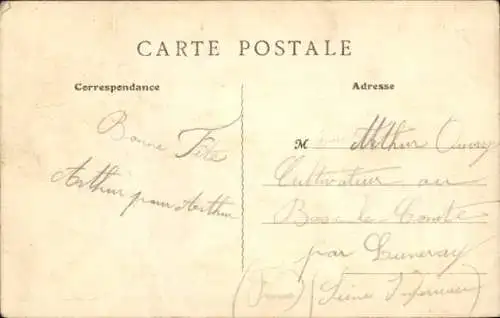 CARTE POSTALE
Correspondance
Adresse
Bonne Fête
Arthur pour Arthur
M Arthur
Cultivateur au
Bosc-le-Comte
par Luneray
(Seine Inférieure)